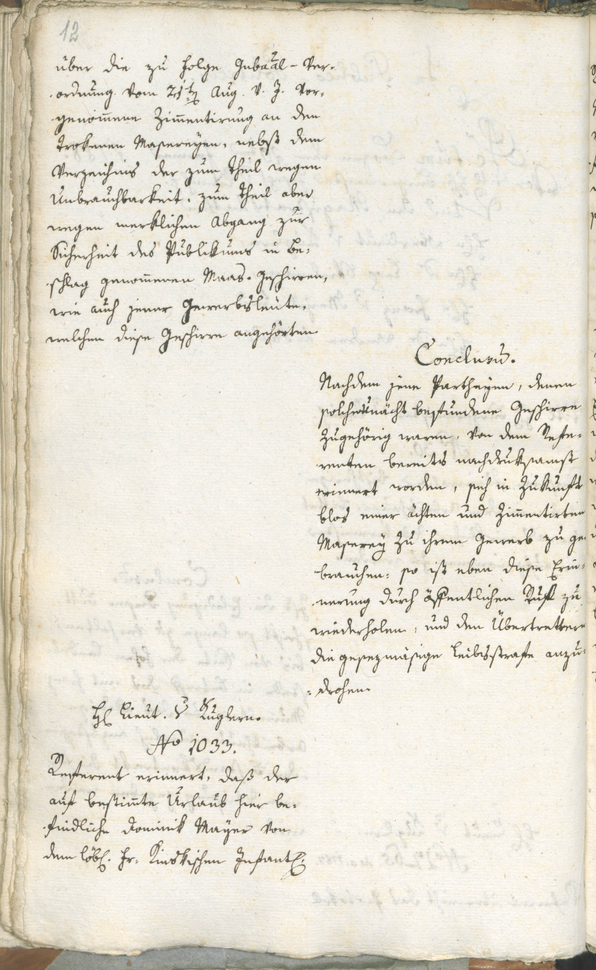 12
über die zu Folge Gubaal-Ver-
ordnung vom 21ten Aug. v. J. vor-
genommene Zimentirung an den
trokenen Maßereyen, nebst dem
Verzeichnis der zum Theil wegen
Unbrauchbarkeit, zum Theil aber
wegen merklichen Abgang zur
Sicherheit des Publikums in Be-
schlag genommenen Maas-Geschirren,
wie auch jener Gewerbsleüte,
welchen diese Geschirre angehörten
Conclusum.
Nachdem jene Partheyen, denen
solche unächt befundene Geschirre
zugehörig waren, von dem Refe-
renten bereits nachdruksamst
erinnert worden, sich in Zukunft
blos einer ächten und zimentirten
Maßerey zu ihrem Gewerb zu ge-
brauchen: so ist eben diese Erin-
nerung durch öffentlichen Ruf zu
wiederholen, und den Übertrettern
die gesezmäsige Leibsstrafe anzu-
drohen.
H. Lieut. v Kuglern.
No 1033.
Referent erinnert, daß der
auf bestimmte Urlaub hier be-
findliche Dominik Mayer von
dem löbl. Gr. Kinskischen Infant.